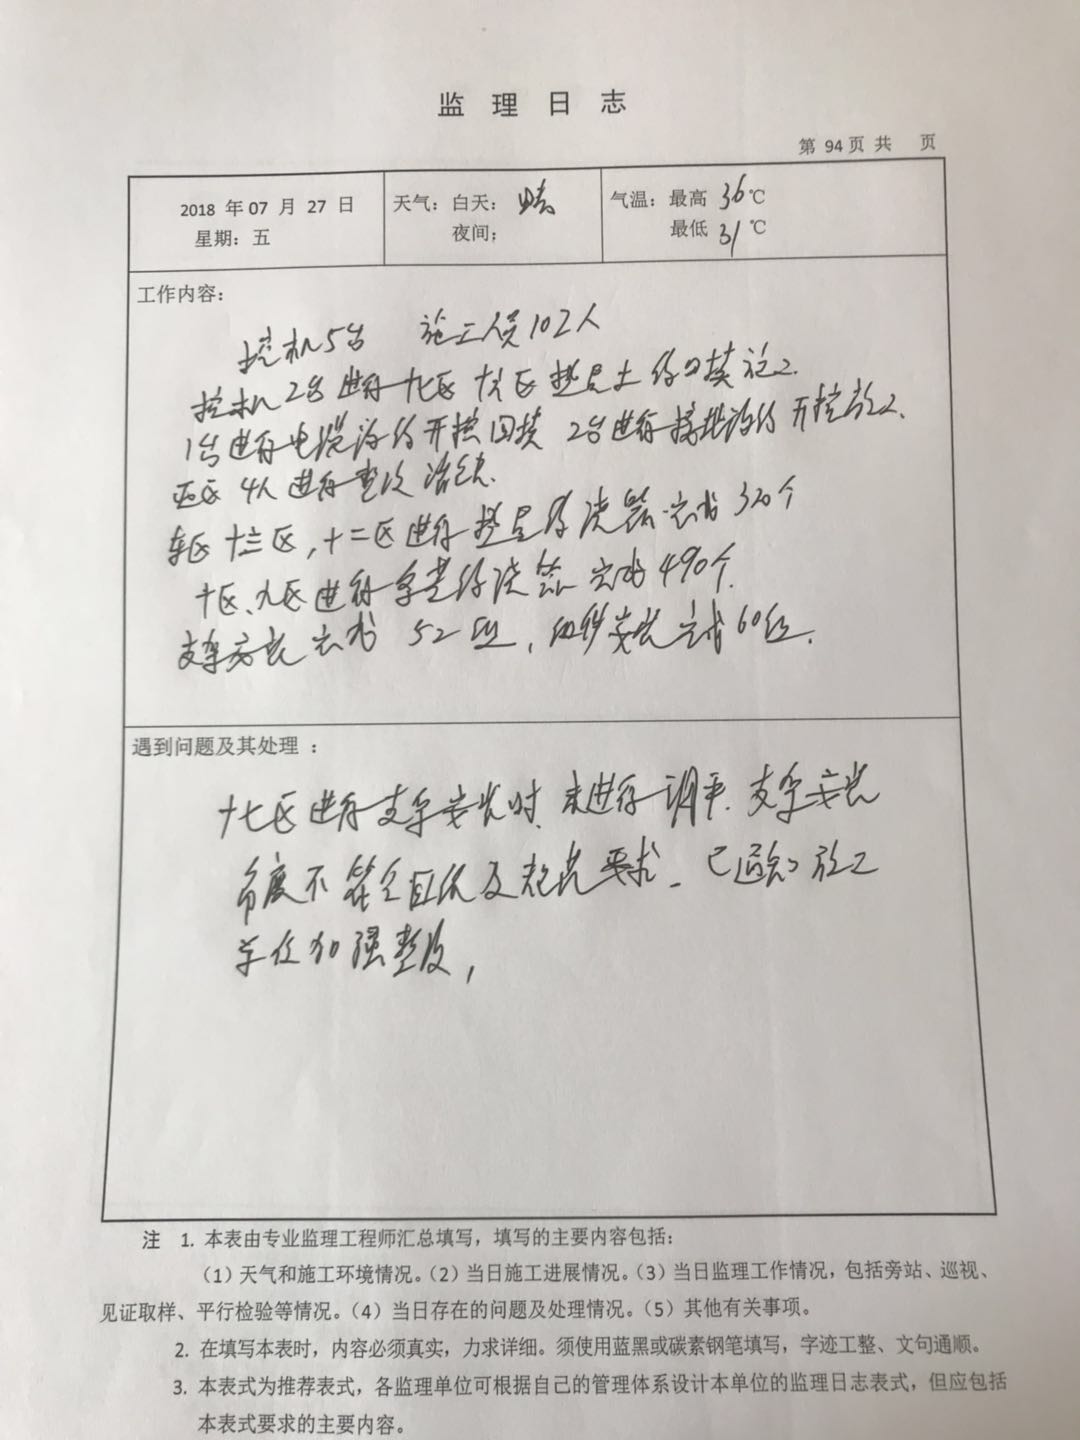 监理日志
第 94 页 共 页
2018 年 07 月 27 日
星期：五
天气：白天：晴
夜间：
气温：最高 36 ℃
最低 31 ℃
工作内容：
挖机5台 施工人员102人
挖机2台进行十七区 十六区 垫层土的回填施工.
1台进行电缆沟的开挖回填 2台进行接地沟的开挖施工.
西区 4人进行整改消缺.
东区 十三区，十二区进行垫层的浇筑完成 320个
十区、九区进行的浇筑完成490个.
支架安装完成 52组，组件安装完成60组.
遇到问题及其处理 ：
十七区进行支架安装时、未进行调平. 支架安装
角度不符合及要求 已通知施工
单位加强整改，
注 1. 本表由专业监理工程师汇总填写，填写的主要内容包括：
（1）天气和施工环境情况。（2）当日施工进展情况。（3）当日监理工作情况，包括旁站、巡视、
见证取样、平行检验等情况。（4）当日存在的问题及处理情况。（5）其他有关事项。
2. 在填写本表时，内容必须真实，力求详细。须使用蓝黑或碳素钢笔填写，字迹工整、文句通顺。
3. 本表式为推荐表式，各监理单位可根据自己的管理体系设计本单位的监理日志表式，但应包括
本表式要求的主要内容。